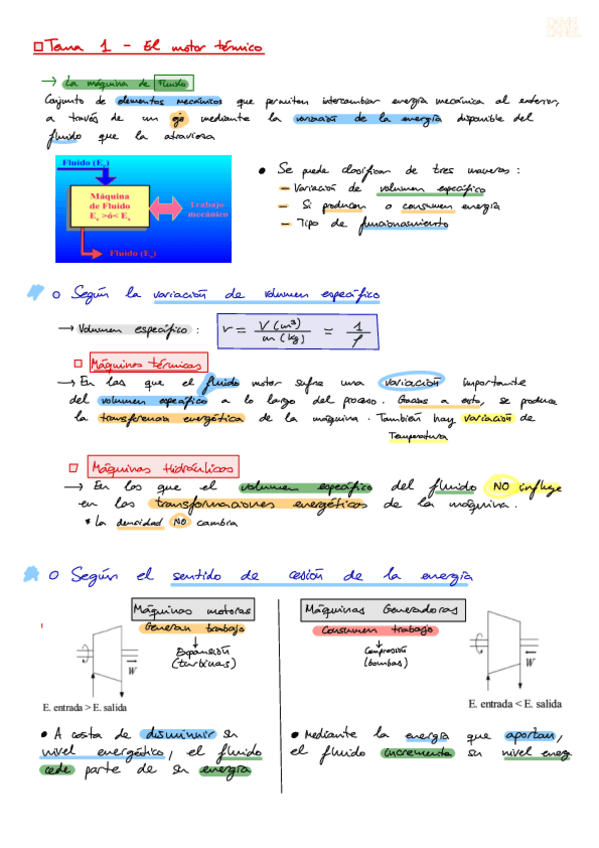 Tema 1 - El motor térmico
→ La máquina de Fluido
Conjunto de elementos mecánicos que permiten intercambiar energía mecánica al exterior,
a través de un eje mediante la variación de la energía disponible del
fluido que la atraviesa
Fluido (Eₑ)
Máquina
de Fluido
Eₑ >ó< Eₛ
Trabajo
mecánico
Fluido (Eₛ)
• Se puede clasificar de tres maneras:
- Variación de volumen específico
- Si producen o consumen energía
- Tipo de funcionamiento
○ Según la variación de volumen específico
→ Volumen específico: v = V (m³) / m (kg) = 1 / ρ
□ Máquinas térmicas
→ En las que el fluido motor sufre una variación importante
del volumen específico a lo largo del proceso. Gracias a esto, se produce
la transferencia energética de la máquina. También hay variación de
Temperatura
□ Máquinas Hidráulicas
→ En las que el volumen específico del fluido NO influye
en las transformaciones energéticas de la máquina.
* la densidad NO cambia
○ Según el sentido de cesión de la energía
Máquinas motoras
Generan trabajo
↓
Expansión
(turbinas)
W
E. entrada > E. salida
• A costa de disminuir su
nivel energético, el fluido
cede parte de su energía
Máquinas Generadoras
Consumen trabajo
↓
Compresión
(bombas)
W
E. entrada < E. salida
• Mediante la energía que aportan,
el fluido incrementa su nivel energ